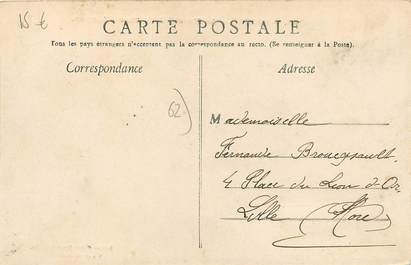 15 €
CARTE POSTALE
Tous les pays étrangers n'acceptent pas la correspondance au recto. (Se renseigner à la Poste).
Correspondance
Adresse
62)
Mademoiselle
Fernande
4 Place du Lion d'Or
Lille Nord